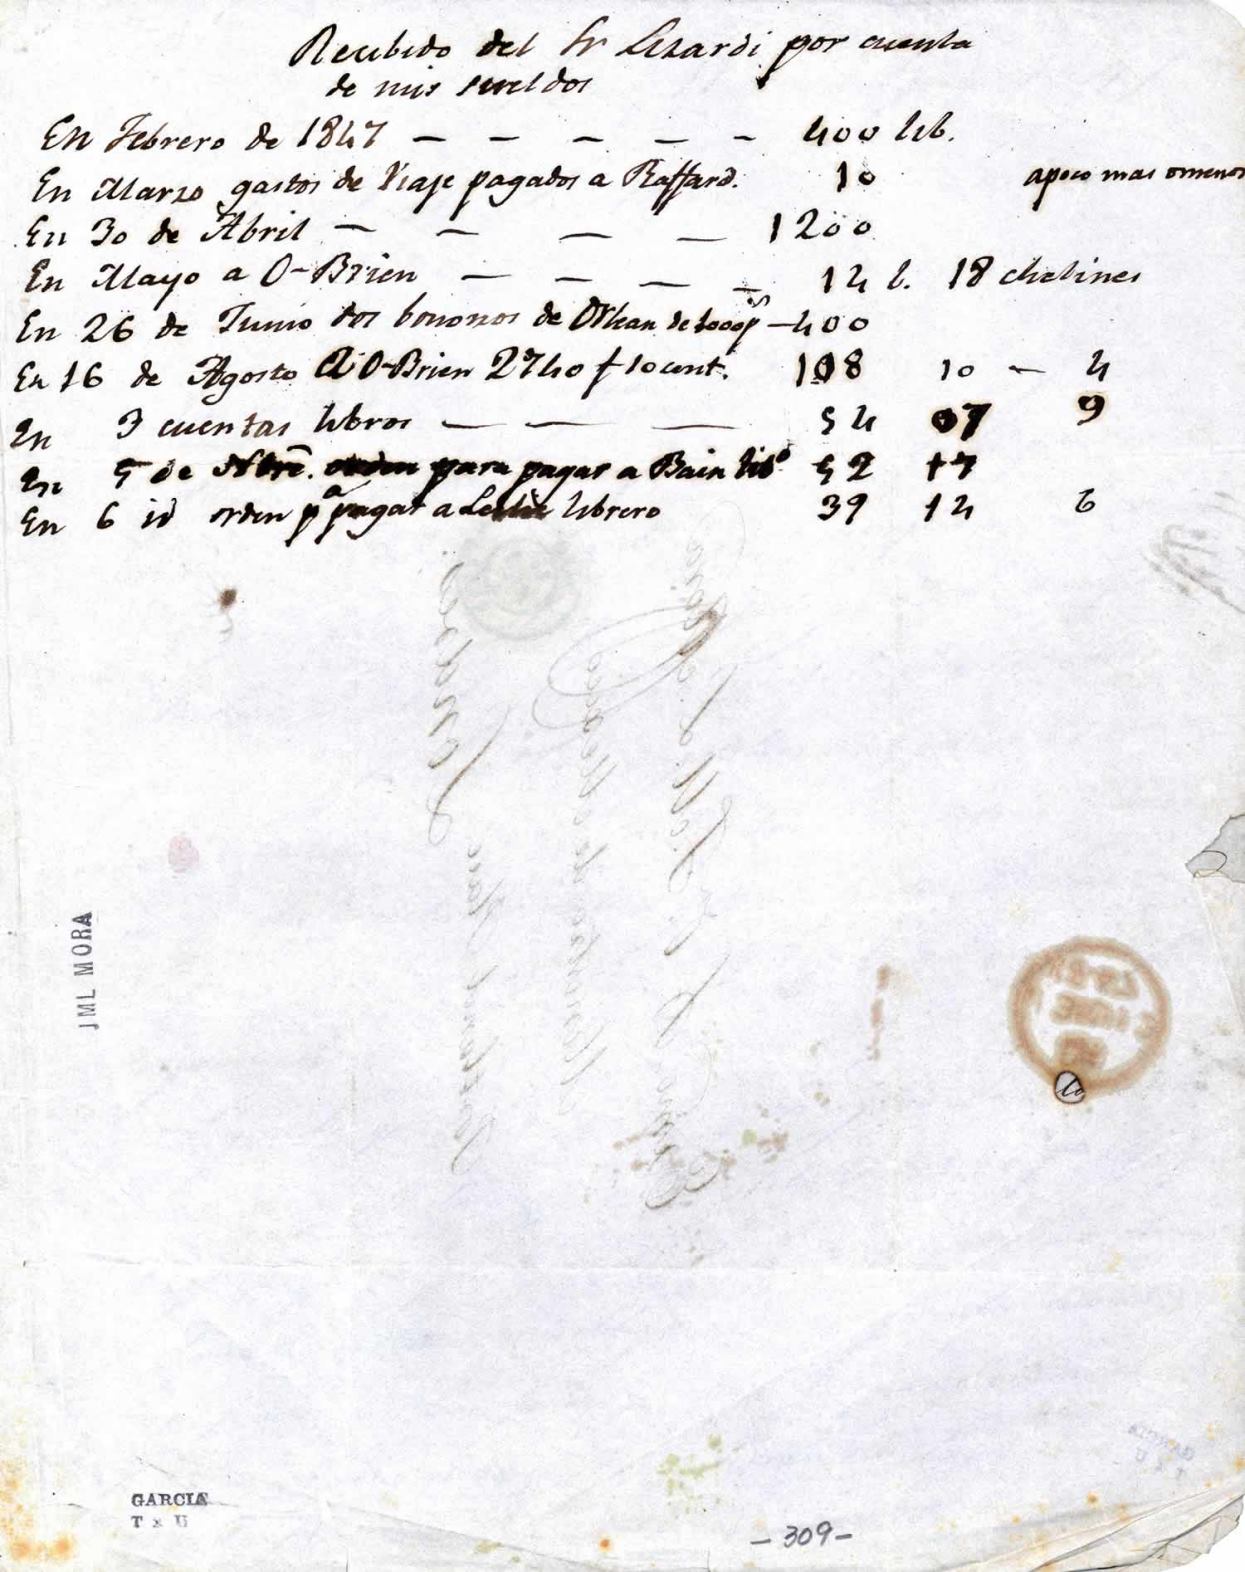 Recibido del Sr Lizardi por cuenta
de mis sueldos
En Febrero de 1847 — — — — — 400 lib.
En Marzo gastos de Viaje pagados a Raffard. 10 apoco mas omenos
En 30 de Abril — — — — 1200
En Mayo a O-Brien — — — — 14 l. 18 chelines
En 26 de Junio dos de Orlean de — 400
En 16 de Agosto a O-Brien 2740 f 10 cent. 108 10 — 4
En 3 cuentas libros — — — 54 07 9
En 5 de para pagar a Bain lib° 52 17
En 6 id orden pa pagar a Leslie librero 39 14 6
JML MORA
lo
GARCIA
T x U
- 309 -